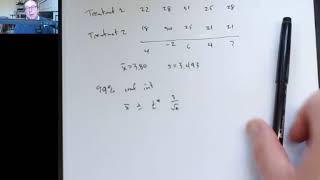 Treatment 1 22 28 31 25 28
Treatment 2 18 30 25 21 21
4 -2 6 4 7
x̄ = 3.80 s = 3.493
99% conf int
x̄ ± t*